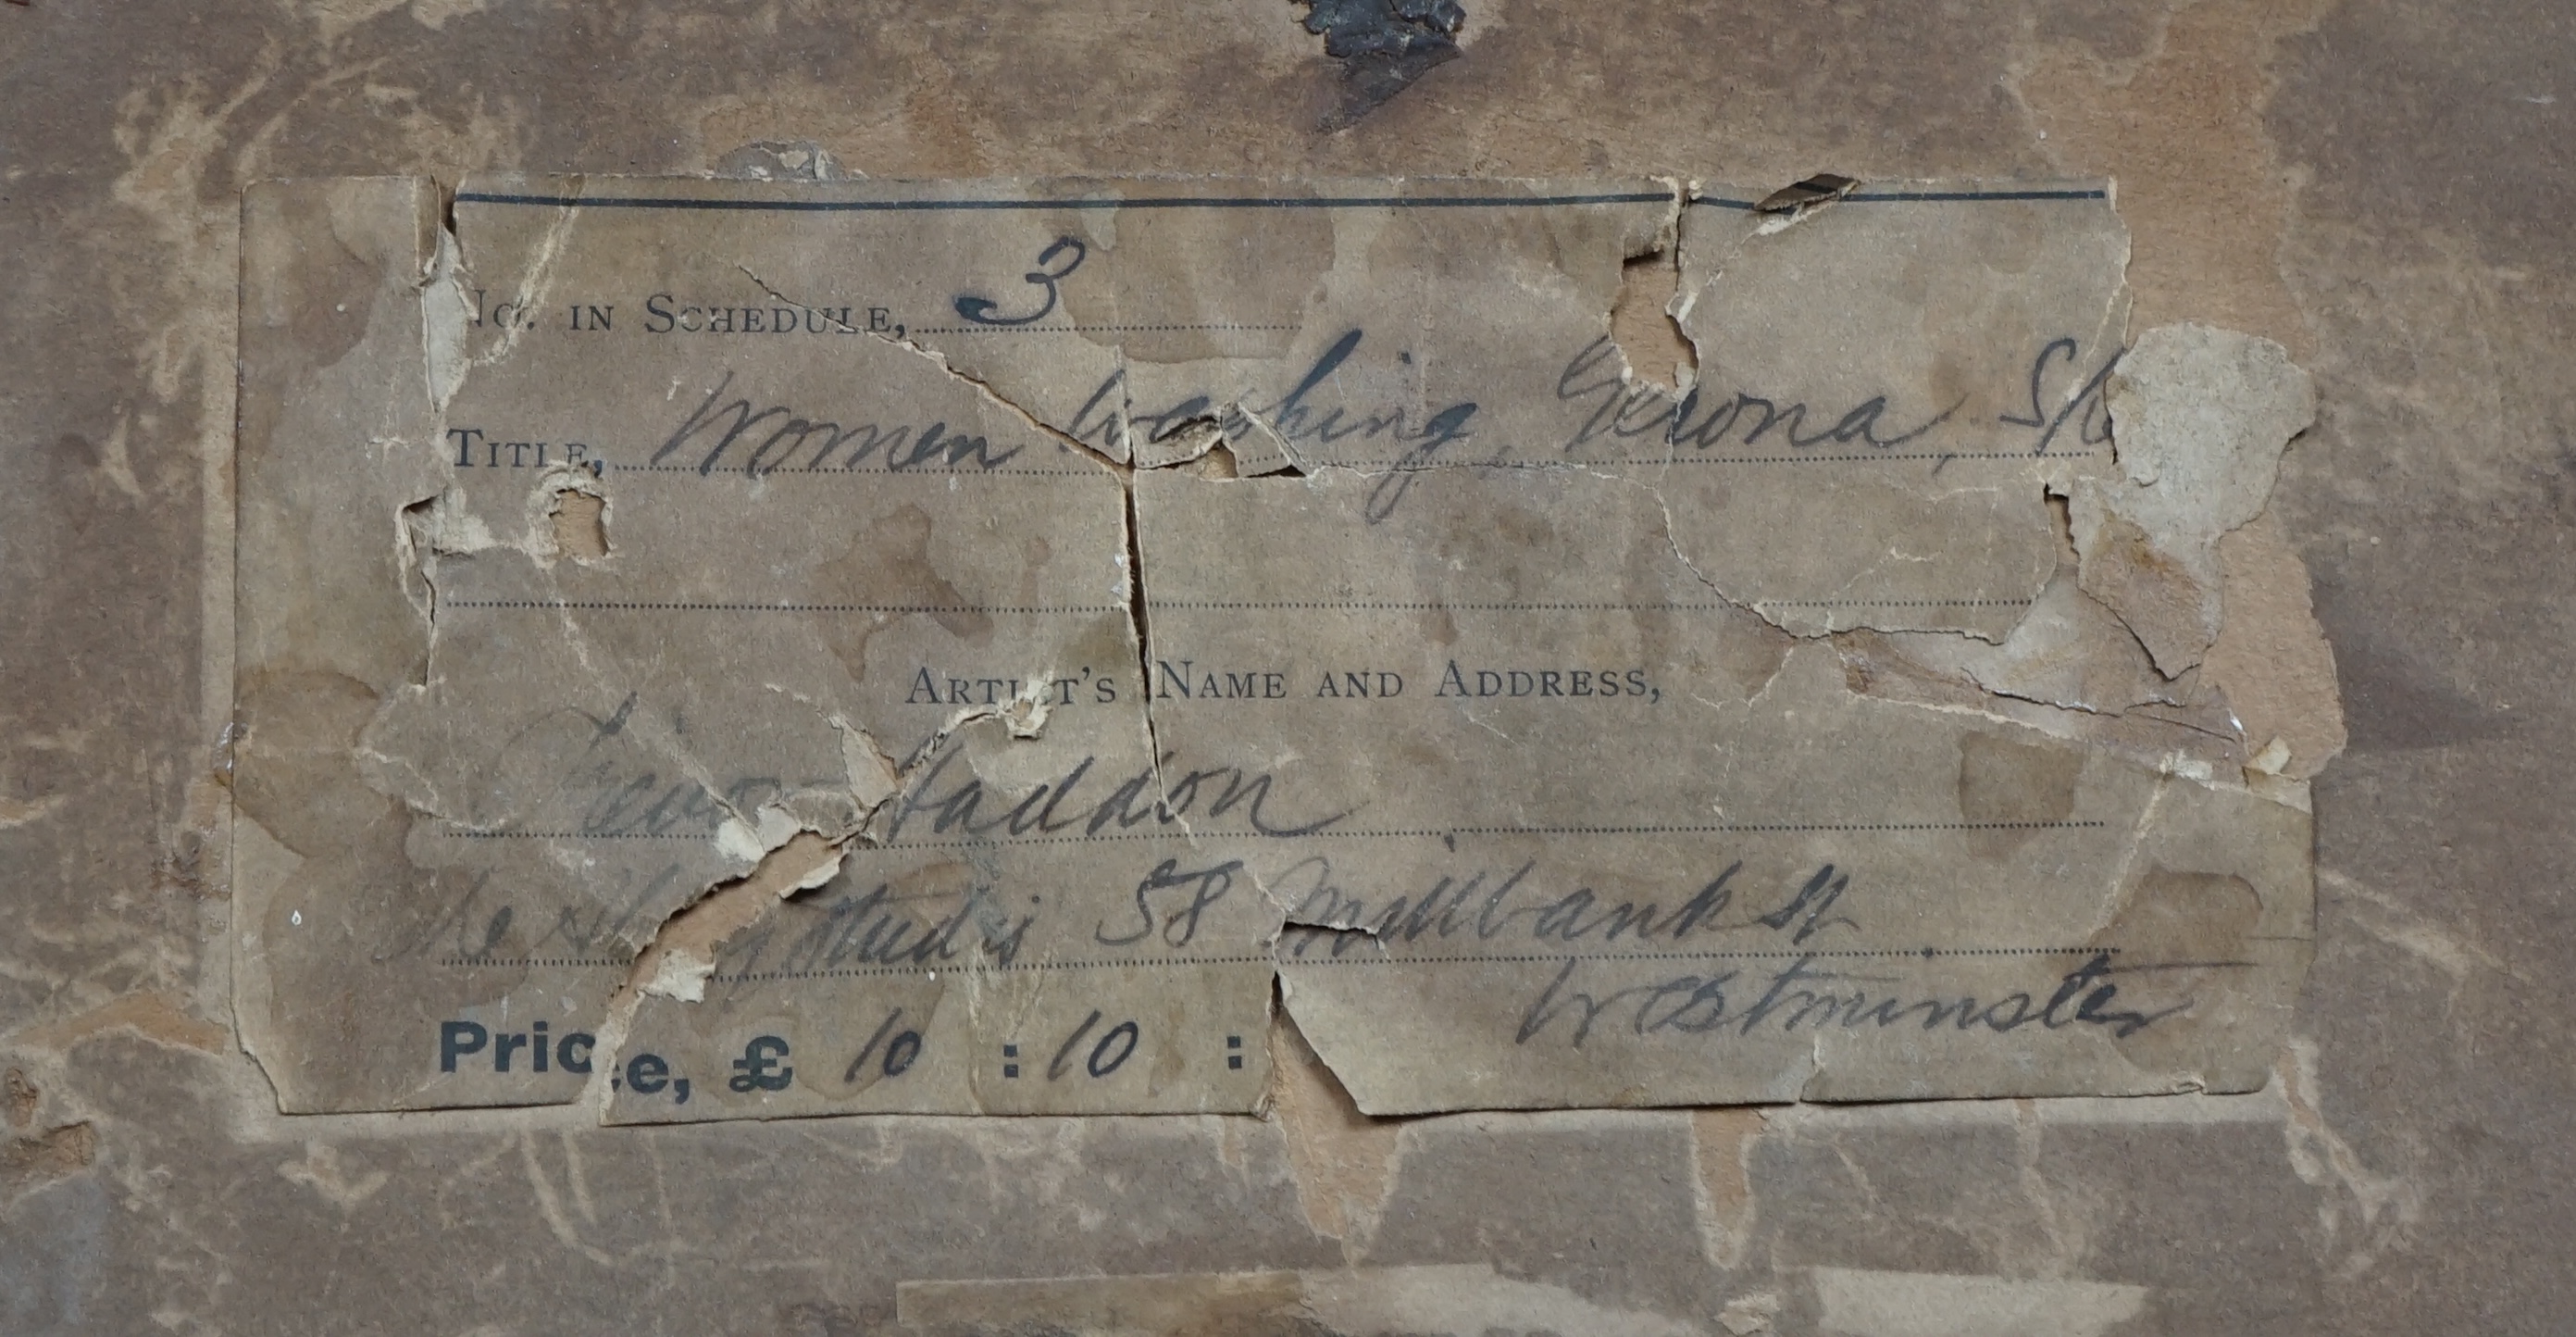 No. in Schedule, 3
Title, Women Washing, Gerona, Sp
Artist's Name and Address,
Trevor Haddon
The Studis 58 Millbank St
Westminster
Price, £ 10 : 10 :